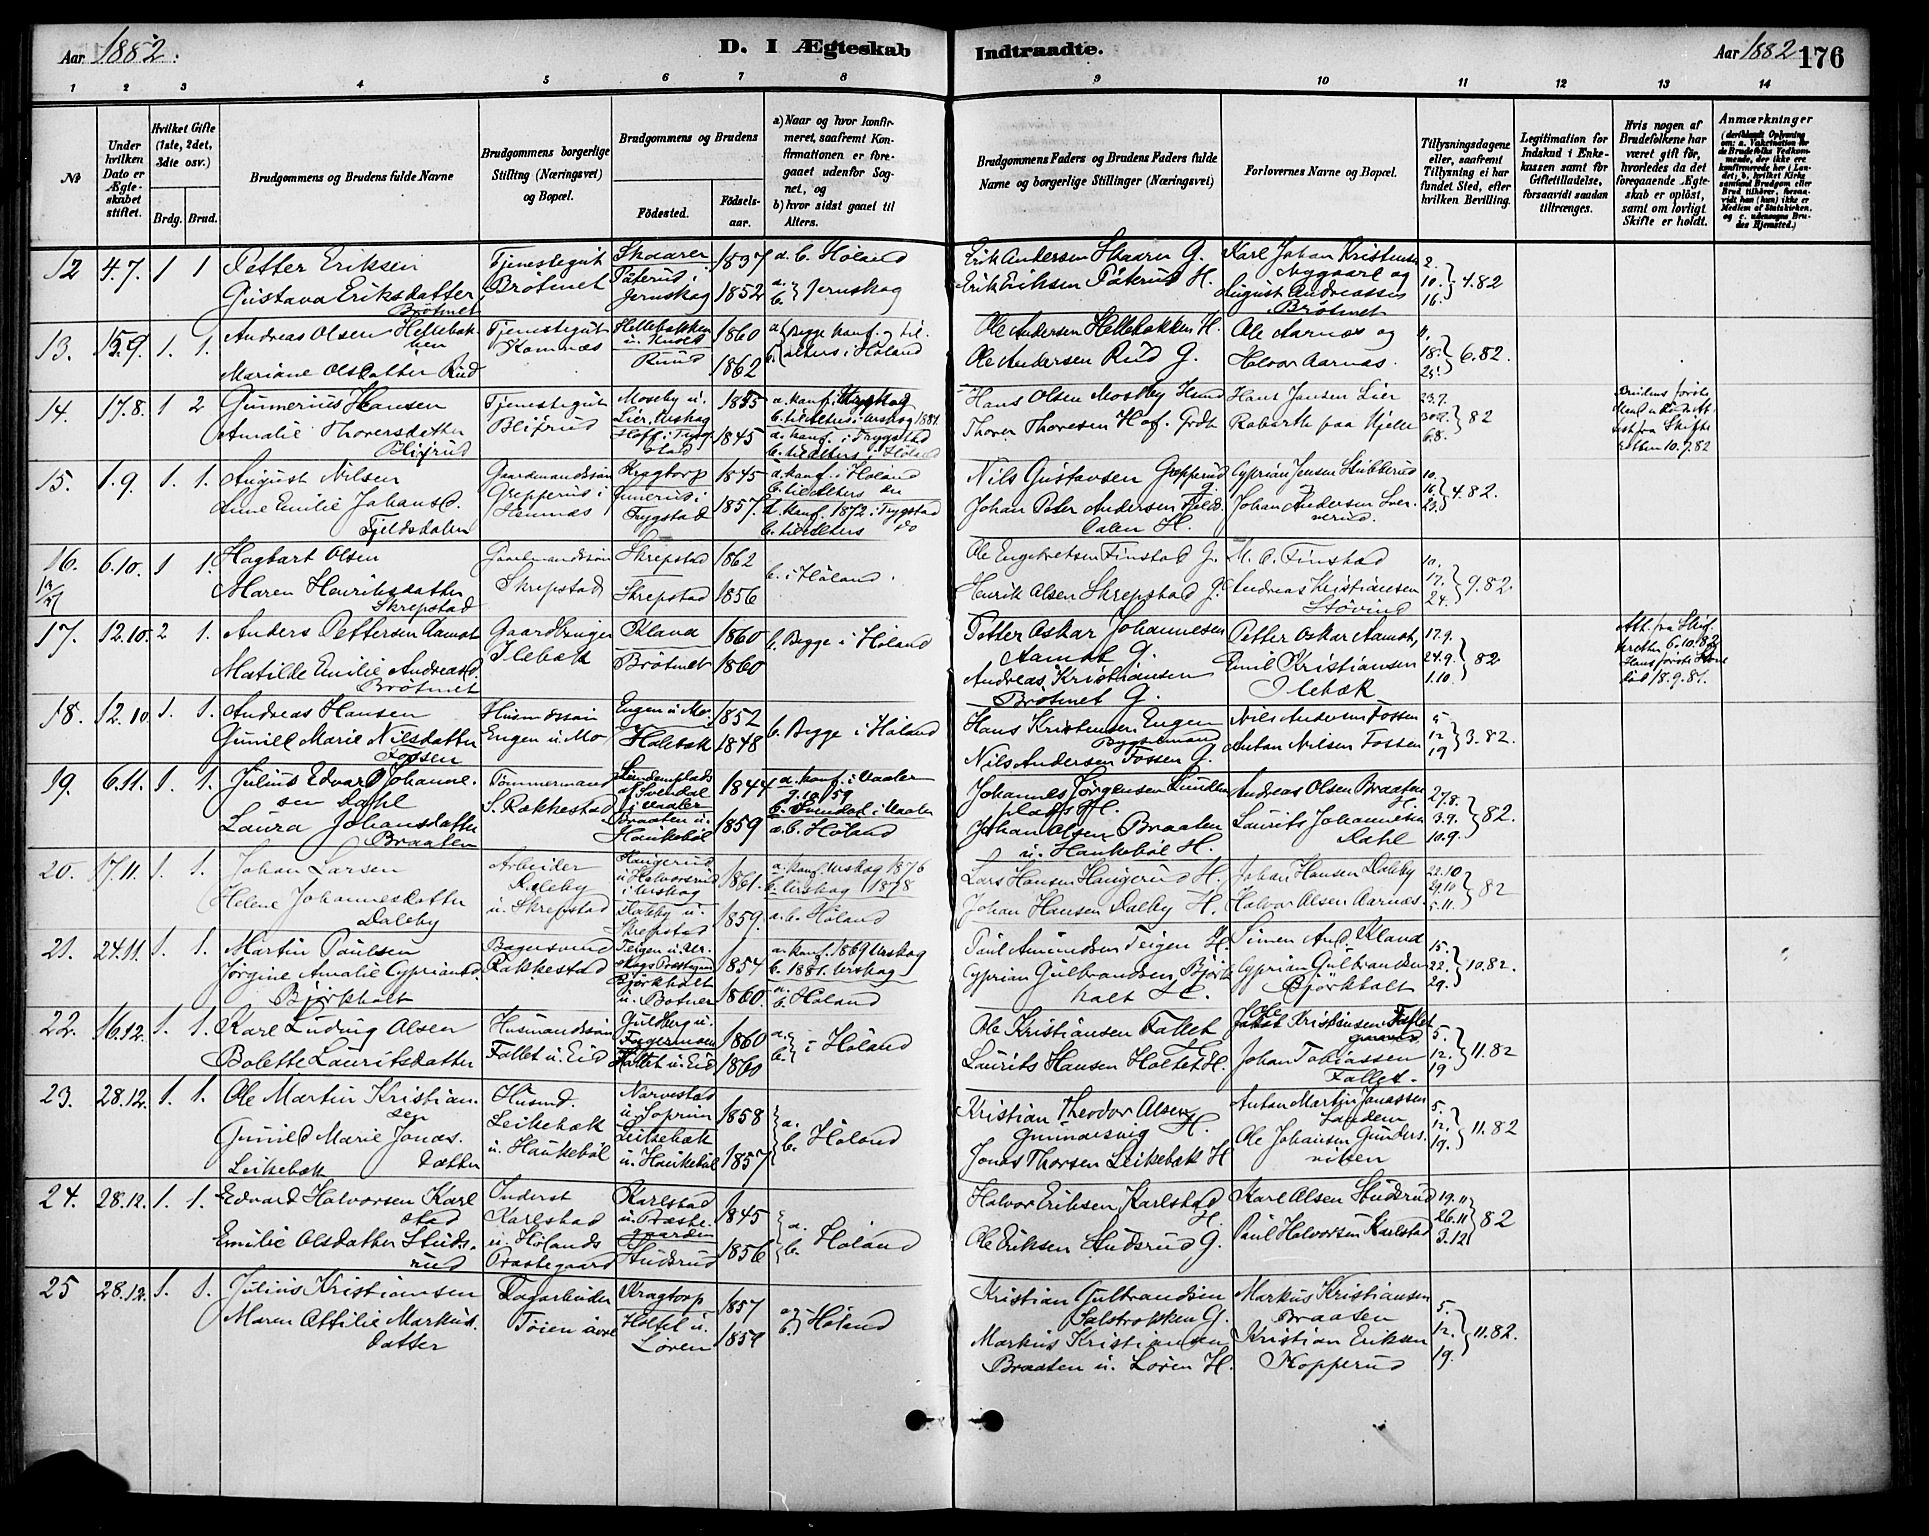 Aar 1882.
D. I Ægteskab
Indtraadte.
Aar 1882
176
1 2 3 4 5 6 7 8 9 10 11 12 13 14
No
Under hvilken Dato er Ægteskabet stiftet.
Hvilket Gifte (1ste, 2det, 3die osv.)
Brdg. Brud.
Brudgommens og Brudens fulde Navne
Brudgommens borgerlige Stilling (Næringsvei) og Bopæl.
Brudgommens og Brudens
Födested.
Födselsaar.
a) Naar og hvor konfirmeret, saafremt Konfirmationen er foregaaet udenfor Sognet, og
b) hvor sidst gaaet til Alters.
Brudgommens Faders og Brudens Faders fulde Navne og borgerlige Stillinger (Næringsvei)
Forlovernes Navne og Bopæl.
Tillysningsdagene eller, saafremt Tillysning ei har fundet Sted, efter hvilken Bevilling.
Legitimation for Indskud i Enkekassen samt for Giftetilladelse, forsaavidt saadan tiltrænges.
Hvis nogen af Brudefolkene har været gift för, hvorledes da det foregaaende Ægteskab er oplöst, samt om lovligt Skifte er holdt.
Anmærkninger
12 4.7. 1 1 Petter Eriksen
Gustava Eriksdatter
Brötmet
Tjenestegut
Brötmet
Skaarer 1837
Päterud i Jernskog 1852
a. b. Höland
a. b. Jernskog
Erik Andersen Skaarer G.
Erik Eriksen Päterud H.
Karl Johan Kristensen
Nygaard og
August Andreassen
Brötmet
2. 10. 16. 4.82
13. 15.9. 1. 1. Andreas Olsen Hellebækken
Mariane Olsdatter Rud
Tjenestegut
Komnæs
Hellebækken 1860
Ruud 1862
a. b. Begge konf. og til alters i Höland
Ole Andersen Hellebækken H.
Ole Andersen Rud G.
Ole Aarnæs og
Halvor Aarnæs.
11. 18. 25. 6.82
14. 17.8. 1 2 Gunnerius Hansen
Amalie Thoresdatter
Blixrud
Tjenestegut
Blixrud
Moseby u. Lier, Urskog 1855
Hoff i Trygstad 1845
a. konf. i Urskog
b. til alters i Urskog 1881.
a. konf. i Trygstad
b. til alters i Höland
Hans Olsen Moseby Hsmd
Thorer Thoresen Hof. Grdbr
Hans Jensen Lier
Roberth paa Kjelle
23.7. 30.7. 6.8. 82
Brudens förste
10.9.82
15. 1.9. 1. 1. August Nilsen
Anne Emilie Johansd.
Fjeldsdalen
Gaardmandssön
Grepperud i
Hemnæs
Kragtorp 1845
Trygstad 1857.
a. konf. i Höland
b. til Alters do
a. konf. 1872 i Trygstad
b. til Alters do
Nils Gustavsen Grepperud G.
Johan Peter Andersen Fjeldsdalen H.
Cyprian Jensen Stubberud
Johan Andersen
10. 16. 23. 4.82.
16. 6.10. 1 1. Hagbart Olsen
Maren Henriksdatter
Skrepstad
Gaardmandssön
Skrepstad
Skrepstad 1862
Skrepstad 1856
b. i Höland.
Ole Engebretsen Finstad G.
Henrik Olsen Skrepstad G.
M. O. Finstad
Andreas Kristiansen
Stövind
10. 17. 24. 9.82.
17. 12.10. 2 1. Anders Pettersen Aamot
Matilde Emilie Andreasd.
Brötmet
Gaardbruger
Ilebæk
Kland 1860
Brötmet 1860
b. Begge i Höland
Petter Oskar Johannesen
Aamot G.
Andreas Kristiansen
Brötmet G.
Petter Oskar Aamot,
Emil Kristiansen
Ilebæk
17.9. 24.9. 1.10. 82
Att. fra Skifteretten 6.10.82
Hans förste Kone
död 18.9.81.
18. 12.10. 1. 1. Andreas Hansen
Gunild Marie Nilsdatter
Fossen
Husmdssön
Engen u. Mo
Engen u. Mo 1852
Holebæk 1848
b. Begge i Höland
Hans Kristensen Engen
Bygselmand
Nils Andersen Fossen G.
Nils Andersen Fossen
Anton Nilsen Fossen
5 12 19 3.82.
19. 6.11. 1. 1. Julius Edvard Johannesen Dahl
Laura Johansdatter
Braaten
Tömmermand
S. Rakkestad
Lundenplads af Svendal i Vaaler 1844
Braaten u. Haukeböl 1859
a. konf. i Vaaler
9.10.59
b. Svendal i Vaaler
a. b. Höland
Johannes Jörgensen Lundenplads H.
Johan Olsen Braaten
u. Haukeböl H.
Andreas Olsen Braaten H.
Laurits Johannesen
Dahl
27.8. 3.9. 10.9. 82.
20. 17.11. 1. 1. Johan Larsen
Helene Johannesdatter
Daleby
Arbeider
Daleby
u. Skrepstad
Haugerud u. Halvorsrud i Urskog 1861.
Daleby u. Skrepstad 1859.
a. konf. Urskog 1876
b. Urskog 1878
a. b. Höland
Lars Hansen Haugerud H.
Johan Hansen Dalby H.
Johan Hansen Daleby
Halvor Olsen Aarnæs
22.10 29.10 5.11. 82
21. 24.11. 1. 1. Martin Paulsen
Jörgine Amalie Cypriansd.
Björkholt
Bagersvend
Rakkestad
Teigen u. Urskogs Præstegaard 1854
Björkholt u. Botner 1860.
a. konf. 1869 Urskog
b. 1881. Urskog
a. b. Höland
Paul Amundsen Teigen H.
Cyprian Gulbrandsen Björkholt H.
Simen And. Kland
Cyprian Gulbrandsen
Björkholt
15. 22. 29. 10.82.
22. 16.12. 1. 1. Karl Ludvig Olsen
Bolette Lauritsdatter
Husmandssön
Fallet u. Eid
Guldberg u. Fagermoen 1860
Fallet u. Eid 1860
a. b. i Höland
Ole Kristiansen Fallet H.
Laurits Hansen Holtet H.
Ole Kristiansen Fallet
Johan Tobiassen
Fallet.
5. 12. 19 11.82
23. 28.12. 1. 1. Ole Martin Kristiansen
Gunild Marie Jonasdatter
Leikebæk
Husmd.
Leikebæk
u. Haukeböl
Narvestad u. Toprin 1858
Leikebæk u. Haukeböl 1857
a. b. Höland
Kristian Theodor Olsen H.
Gunnarsvig
Jonas Thorsen Leikebæk H
Anton Martin Jonassen
Ole Johansen Gunders
viken
5. 12. 19. 11.82
24. 28.12. 1. 1. Edvard Halvorsen Karlstad
Emilie Olsdatter Studsrud
Inderst
Karlstad
u. Hölands
Præstegaard
Karlstad u. Præstegaarden 1845
Studsrud 1856
a. b. Höland
Halvor Eriksen Karlstad H.
Ole Eriksen Studsrud G.
Karl Olsen Studsrud
Paul Halvorsen Karlstad
19.11 26.11 3.12 82
25 28.12. 1. 1. Julius Kristiansen
Maren Attilie Markusdatter
Dagarbeider
Töien övre
Kragtorp 1857
Holtet u. Lören 1859
a. b. Höland
Kristian Gulbrandsen
Salstrokken G.
Markus Kristiansen
Braaten u. Lören H.
Markus Kristiansen
Braaten
Kristian Eriksen
Kopperud
5. 12. 19. 11.82.